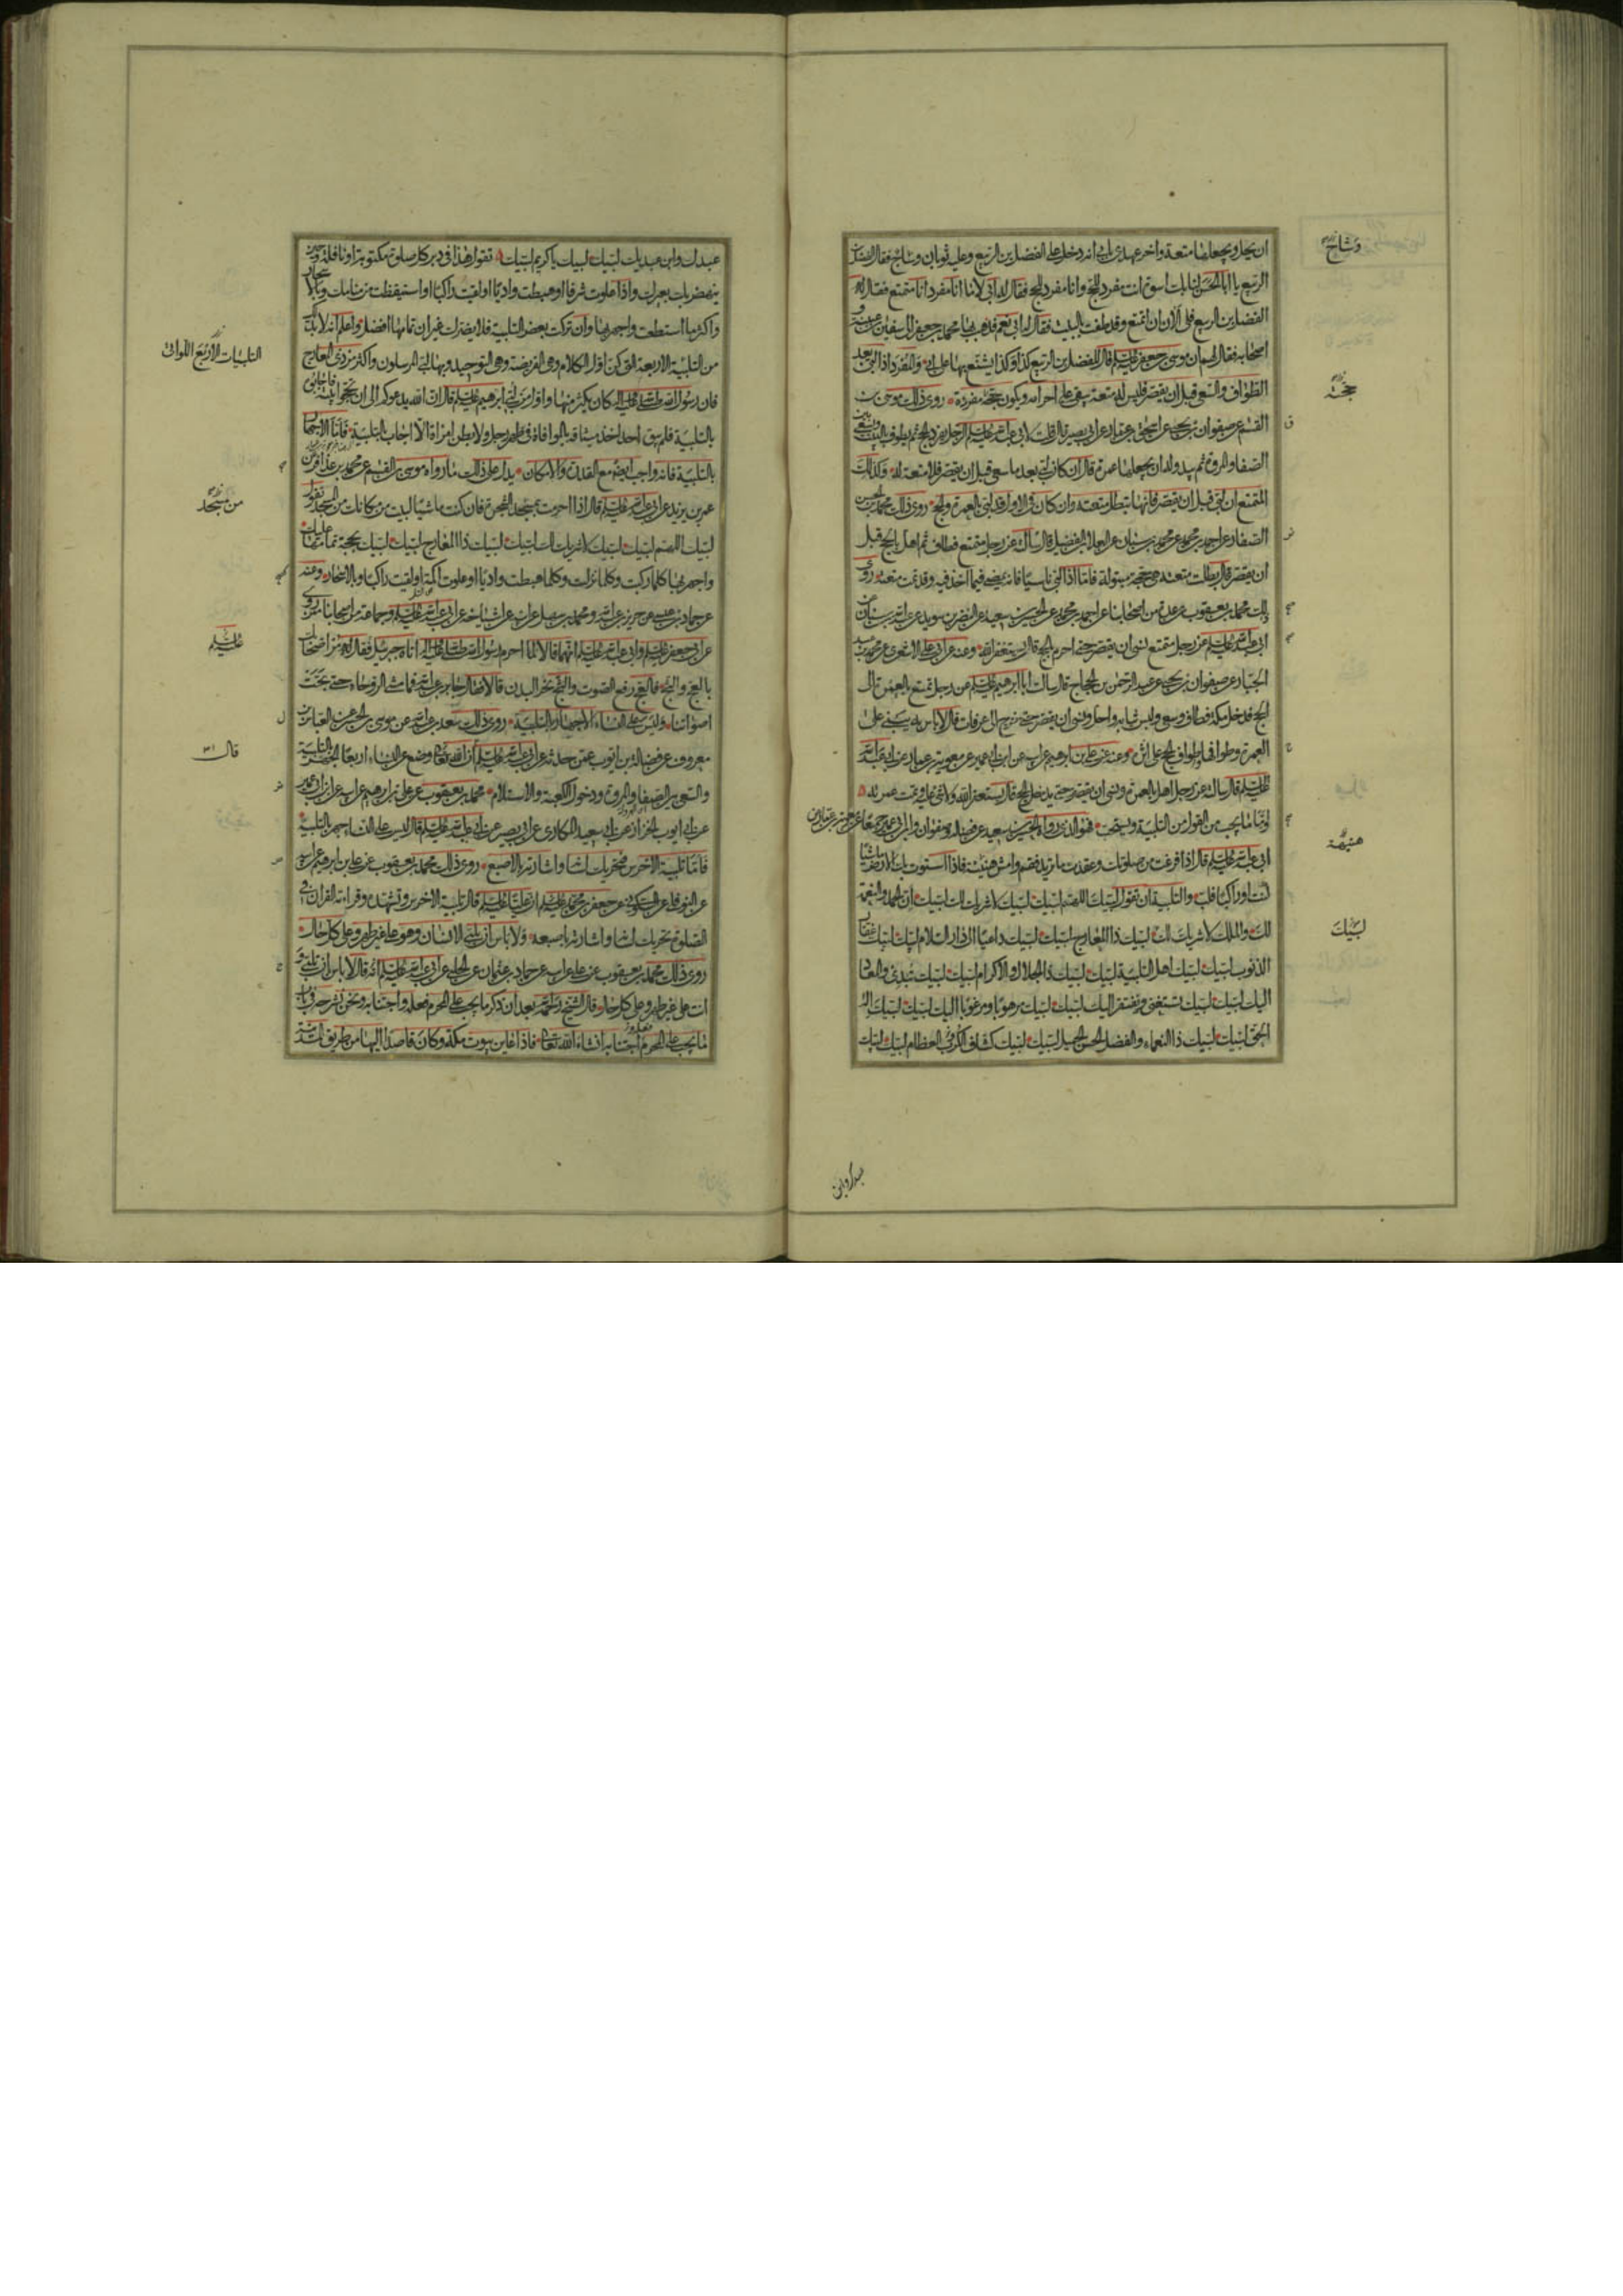 ان يحل ويجعلها متعة واخر عهدى بابى انه دخل على الفضل بن الربيع وعليه ثوبان وساج فقال الفضل بن
الربيع يا ابا الحسن لنا بك اسوة انت مفرد للحج وانا مفرد للحج فقال له ابى لا ما انا مفرد انا متمتع فقال له
الفضل بن الربيع فلى الان ان اتمتع وقد طفت بالبيت فقال له ابى نعم فذهب بها محمد بن جعفر الى سفين بن عيينة و
اصحابه فقال لهم ان موسى بن جعفر عليه السلم قال للفضل بن الربيع كذا وكذا يشنع بها على ابى والمفرد اذا لبى بعد
الطواف والسعى قبل ان يقصر فليس له متعة يبقى على احرامه ويكون حجة مفردة روى ذلك موسى بن
القسم عن صفوان بن يحيى عن اسحق بن عمار عن ابى بصير قال قلت لابى عبد الله عليه السلم الرجل يفرد الحج ثم يطوف بالبيت ويسعى بين
الصفا والمروة ثم يبدو له ان يجعلها عمرة قال ان كان لبى بعد ما سعى قبل ان يقصر فلا متعة له وكذلك
المتمتع ان لبى قبل ان يقصر فانها تبطل متعته وان كان فى الاول قد لبى بالعمرة والحج روى ذلك محمد بن الحسن
الصفار عن احمد بن محمد عن محمد بن سنان عن العلا بن الفضيل قال سالته عن رجل متمتع فطاف ثم اهل بالحج قبل
ان يقصر قال بطلت متعته هى حجة مبتولة فاما اذا لبى ناسيا فانه يمضى فيما اخذ فيه وقد تمت متعته روى
ذلك محمد بن يعقوب عن عدة من اصحابنا عن احمد بن محمد عن الحسين بن سعيد عن النضر بن سويد عن عبد الله بن سنان عن
ابى عبد الله عليه السلم عن رجل متمتع نسى ان يقصر حتى احرم بالحج قال يستغفر الله وعنه عن ابى على الاشعرى عن محمد بن عبد
الجبار عن صفوان بن يحيى عن عبد الرحمن بن الحجاج قال سالت ابا ابرهيم عليه السلم عن رجل تمتع بالعمرة الى
الحج فدخل مكة فطاف وسعى ولبس ثيابه واحل ونسى ان يقصر حتى خرج الى عرفات قال لا باس به يبنى على
العمرة وطوافها وطواف الحج على اثره وعنه عن على بن ابرهيم عن ابيه عن ابن ابى عمير عن معوية بن عمار عن ابى عبد الله
عليه السلم قال سالته عن رجل اهل بالعمرة ونسى ان يقصر حتى يدخل الحج قال يستغفر الله ولا شى عليه وتمت عمرته
فاما ما يجب من القول من التلبية ويستحب فهو الذى رواه الحسين بن سعيد عن فضالة وصفوان وابن ابى عمير جميعا عن معوية بن عمار عن
ابى عبد الله عليه السلم قال اذا فرغت من صلوتك وعقدت ما تريد فقم وامش هنيئة فاذا استوت بك الارض ماشيا
كنت او راكبا فلب والتلبية ان تقول لبيك اللهم لبيك لبيك لا شريك لك لبيك ان الحمد والنعمة
لك والملك لا شريك لك لبيك ذا المعارج لبيك لبيك داعيا الى دار السلام لبيك لبيك غفار
الذنوب لبيك لبيك اهل التلبية لبيك لبيك ذا الجلال والاكرام لبيك لبيك تبدئ والمعاد
اليك لبيك لبيك تستغنى ويفتقر اليك لبيك لبيك مرهوبا ومرغوبا اليك لبيك لبيك اله
الحق لبيك لبيك ذا النعماء والفضل الحسن الجميل لبيك لبيك كشاف الكرب العظام لبيك لبيك
وساج
حجته
هنيهة
لبيك
عبدك وابن
عبدك وابن عبديك لبيك لبيك يا كريم لبيك تقول هذا فى دبر كل صلوة مكتوبة او نافلة وحين
ينهض بك بعيرك واذا علوت شرفا او هبطت واديا او لقيت راكبا او استيقظت من منامك وبالاسحار
واكثر ما استطعت واجهر بها وان تركت بعض التلبية فلا يضرك غير ان تمامها افضل واعلم انه لابد لك
من التلبية الاربعة التى كن اول الكلام وهى الفريضة وهى التوحيد وبها لبى المرسلون واكثر من ذى المعارج
فان رسول الله صلى الله عليه واله كان يكثر منها واول من لبى ابرهيم عليه السلم قال ان الله يدعوكم الى ان تحجوا بيته فاجابوه
بالتلبية فلم يبق احد اخذ ميثاقه بالموافاة فى ظهر رجل ولا بطن امراة الا اجاب بالتلبية فاما الاجهار
بالتلبية فانه واجب ايضا مع القدرة والامكان يدل على ذلك ما رواه موسى بن القسم عن محمد بن عذافر عن
عمر بن يزيد عن ابى عبد الله عليه السلم قال اذا احرمت بمسجد الشجرة فان كنت ماشيا لبيت من مكانك من المسجد تقول
لبيك اللهم لبيك لبيك لا شريك لك لبيك لبيك ذا المعارج لبيك لبيك بحجة تمامها عليك
واجهر بها كلما ركبت وكلما نزلت وكلما هبطت واديا او علوت اكمة او لقيت راكبا وبالاسحار وعنه
عن حماد بن عيسى عن حريز بن عبد الله ومحمد بن سهل عن ابيه عن اشياخه عن ابى عبد الله عليه السلم وجماعة من اصحابنا ممن روى
عن ابى جعفر عليه السلم وابى عبد الله عليه السلم انهما قالا لما احرم رسول الله صلى الله عليه واله اتاه جبرئيل فقال له مر اصحابك
بالعج والثج فالعج رفع الصوت والثج نحر البدن قالا فقال جابر بن عبد الله فما مشى الروحاء حتى بحت
اصواتنا وليس على النساء الاجهار بالتلبية روى ذلك سعد بن عبد الله عن موسى بن الحسن عن العباس بن
معروف عن فضالة بن ايوب عمن حدثه عن ابى عبد الله عليه السلم ان الله تعالى وضع عن النساء اربعا الجهر بالتلبية
والسعى بين الصفا والمروة ودخول الكعبة والاستلام محمد بن يعقوب عن على بن ابرهيم عن ابيه عن ابن ابى عمير
عن ابى ايوب الخزاز عن ابى سعيد المكارى عن ابى بصير عن ابى عبد الله عليه السلم قال ليس على النساء جهر بالتلبية
فاما تلبية الاخرس فتحريك لسانه واشارته بالاصبع روى ذلك محمد بن يعقوب عن على بن ابرهيم عن ابيه
عن النوفلى عن السكونى عن جعفر بن محمد عليه السلم ان عليا عليه السلم قال تلبية الاخرس وتشهده وقراءته القران فى
الصلوة تحريك لسانه واشارته باصبعه ولا باس ان يلبى الانسان وهو على غير طهر وعلى كل حال
روى ذلك محمد بن يعقوب عن على عن ابيه عن حماد بن عثمان عن الحلبى عن ابى عبد الله عليه السلم انه قال لا باس ان تلبى و
انت على غير طهر وعلى كل حال قال الشيخ رحمه الله بعد ان ذكر ما يجب على المحرم فعله واجتنابه ونحن نشرحه فى باب
ما يجب على المحرم اجتنابه انشاء الله تعالى فاذا عاين بيوت مكة وكان قاصدا اليها من طريق المدينة
التلبيات الاربع اللواتى
من مسجد
عليه السلم
قال